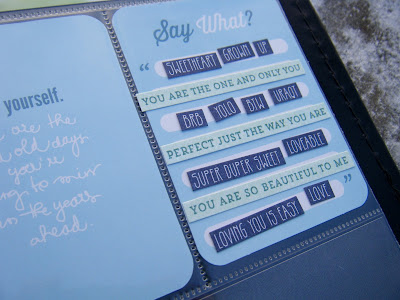 yourself.
are the
old days
you're
to miss
the years
ahead.
Say What?
“ SWEETHEART GROWN UP
YOU ARE THE ONE AND ONLY YOU
BRB YOLO BTW XRAOI
PERFECT JUST THE WAY YOU ARE
SUPER DUPER SWEET LOVEABLE
YOU ARE SO BEAUTIFUL TO ME
LOVING YOU IS EASY LOVE ”